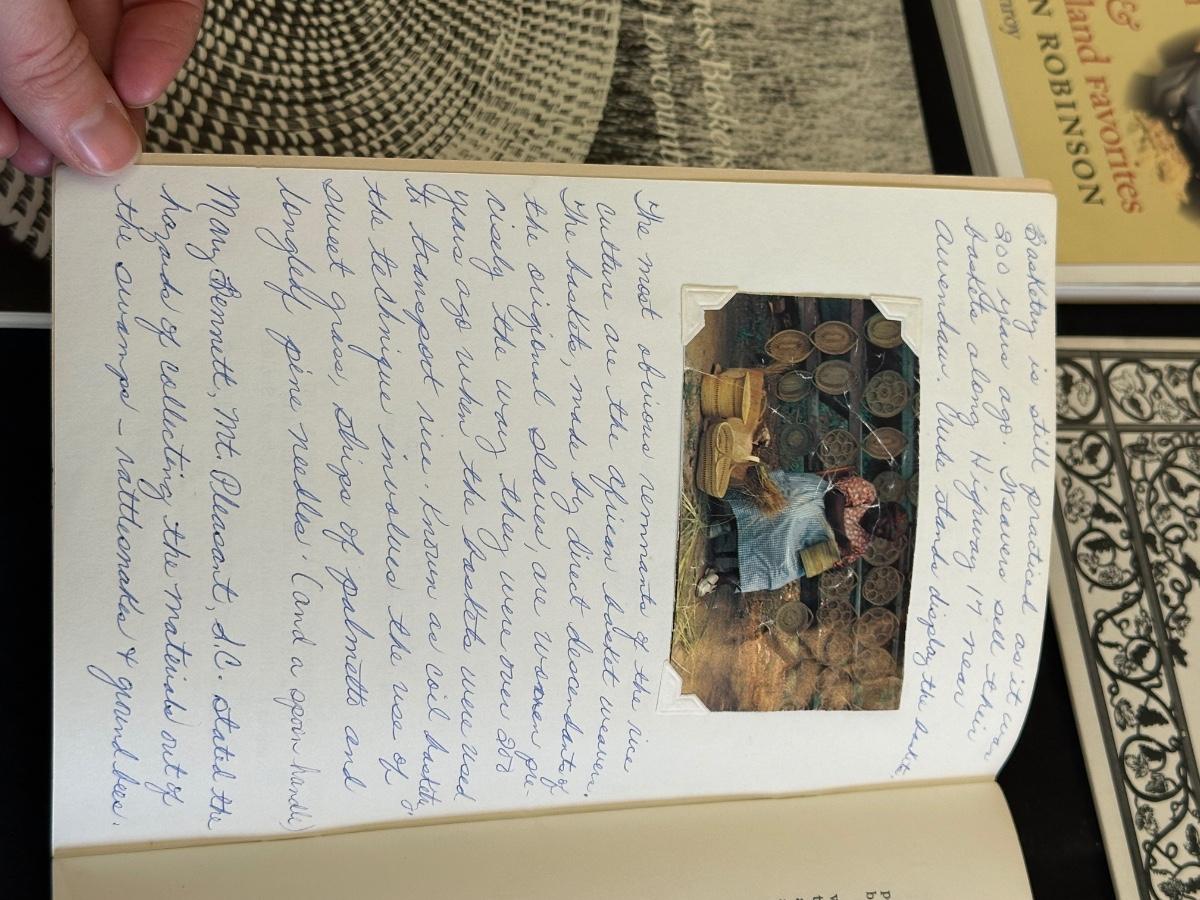 Basketry is still practiced as it was
200 years ago. Weavers sell their
baskets along Highway 17 near
Awendaw. Crude stands display the baskets.
The most obvious remnants of the rice
culture are the African basket weavers.
The baskets, made by direct descendants of
the original slaves, are woven pre-
cisely the way they were over 200
years ago when the baskets were used
to transport rice. Known as coil baskets,
the technique involves the use of
sweet grass, strips of palmetto and
longleaf pine needles. (and a spoon handle)
Mary Bennett, Mt. Pleasant, S.C. stated the
hazards of collecting the materials out of
the swamps - rattlesnakes & ground bees.
rass Baskets
Lowcount
&
land Favorites
N ROBINSON